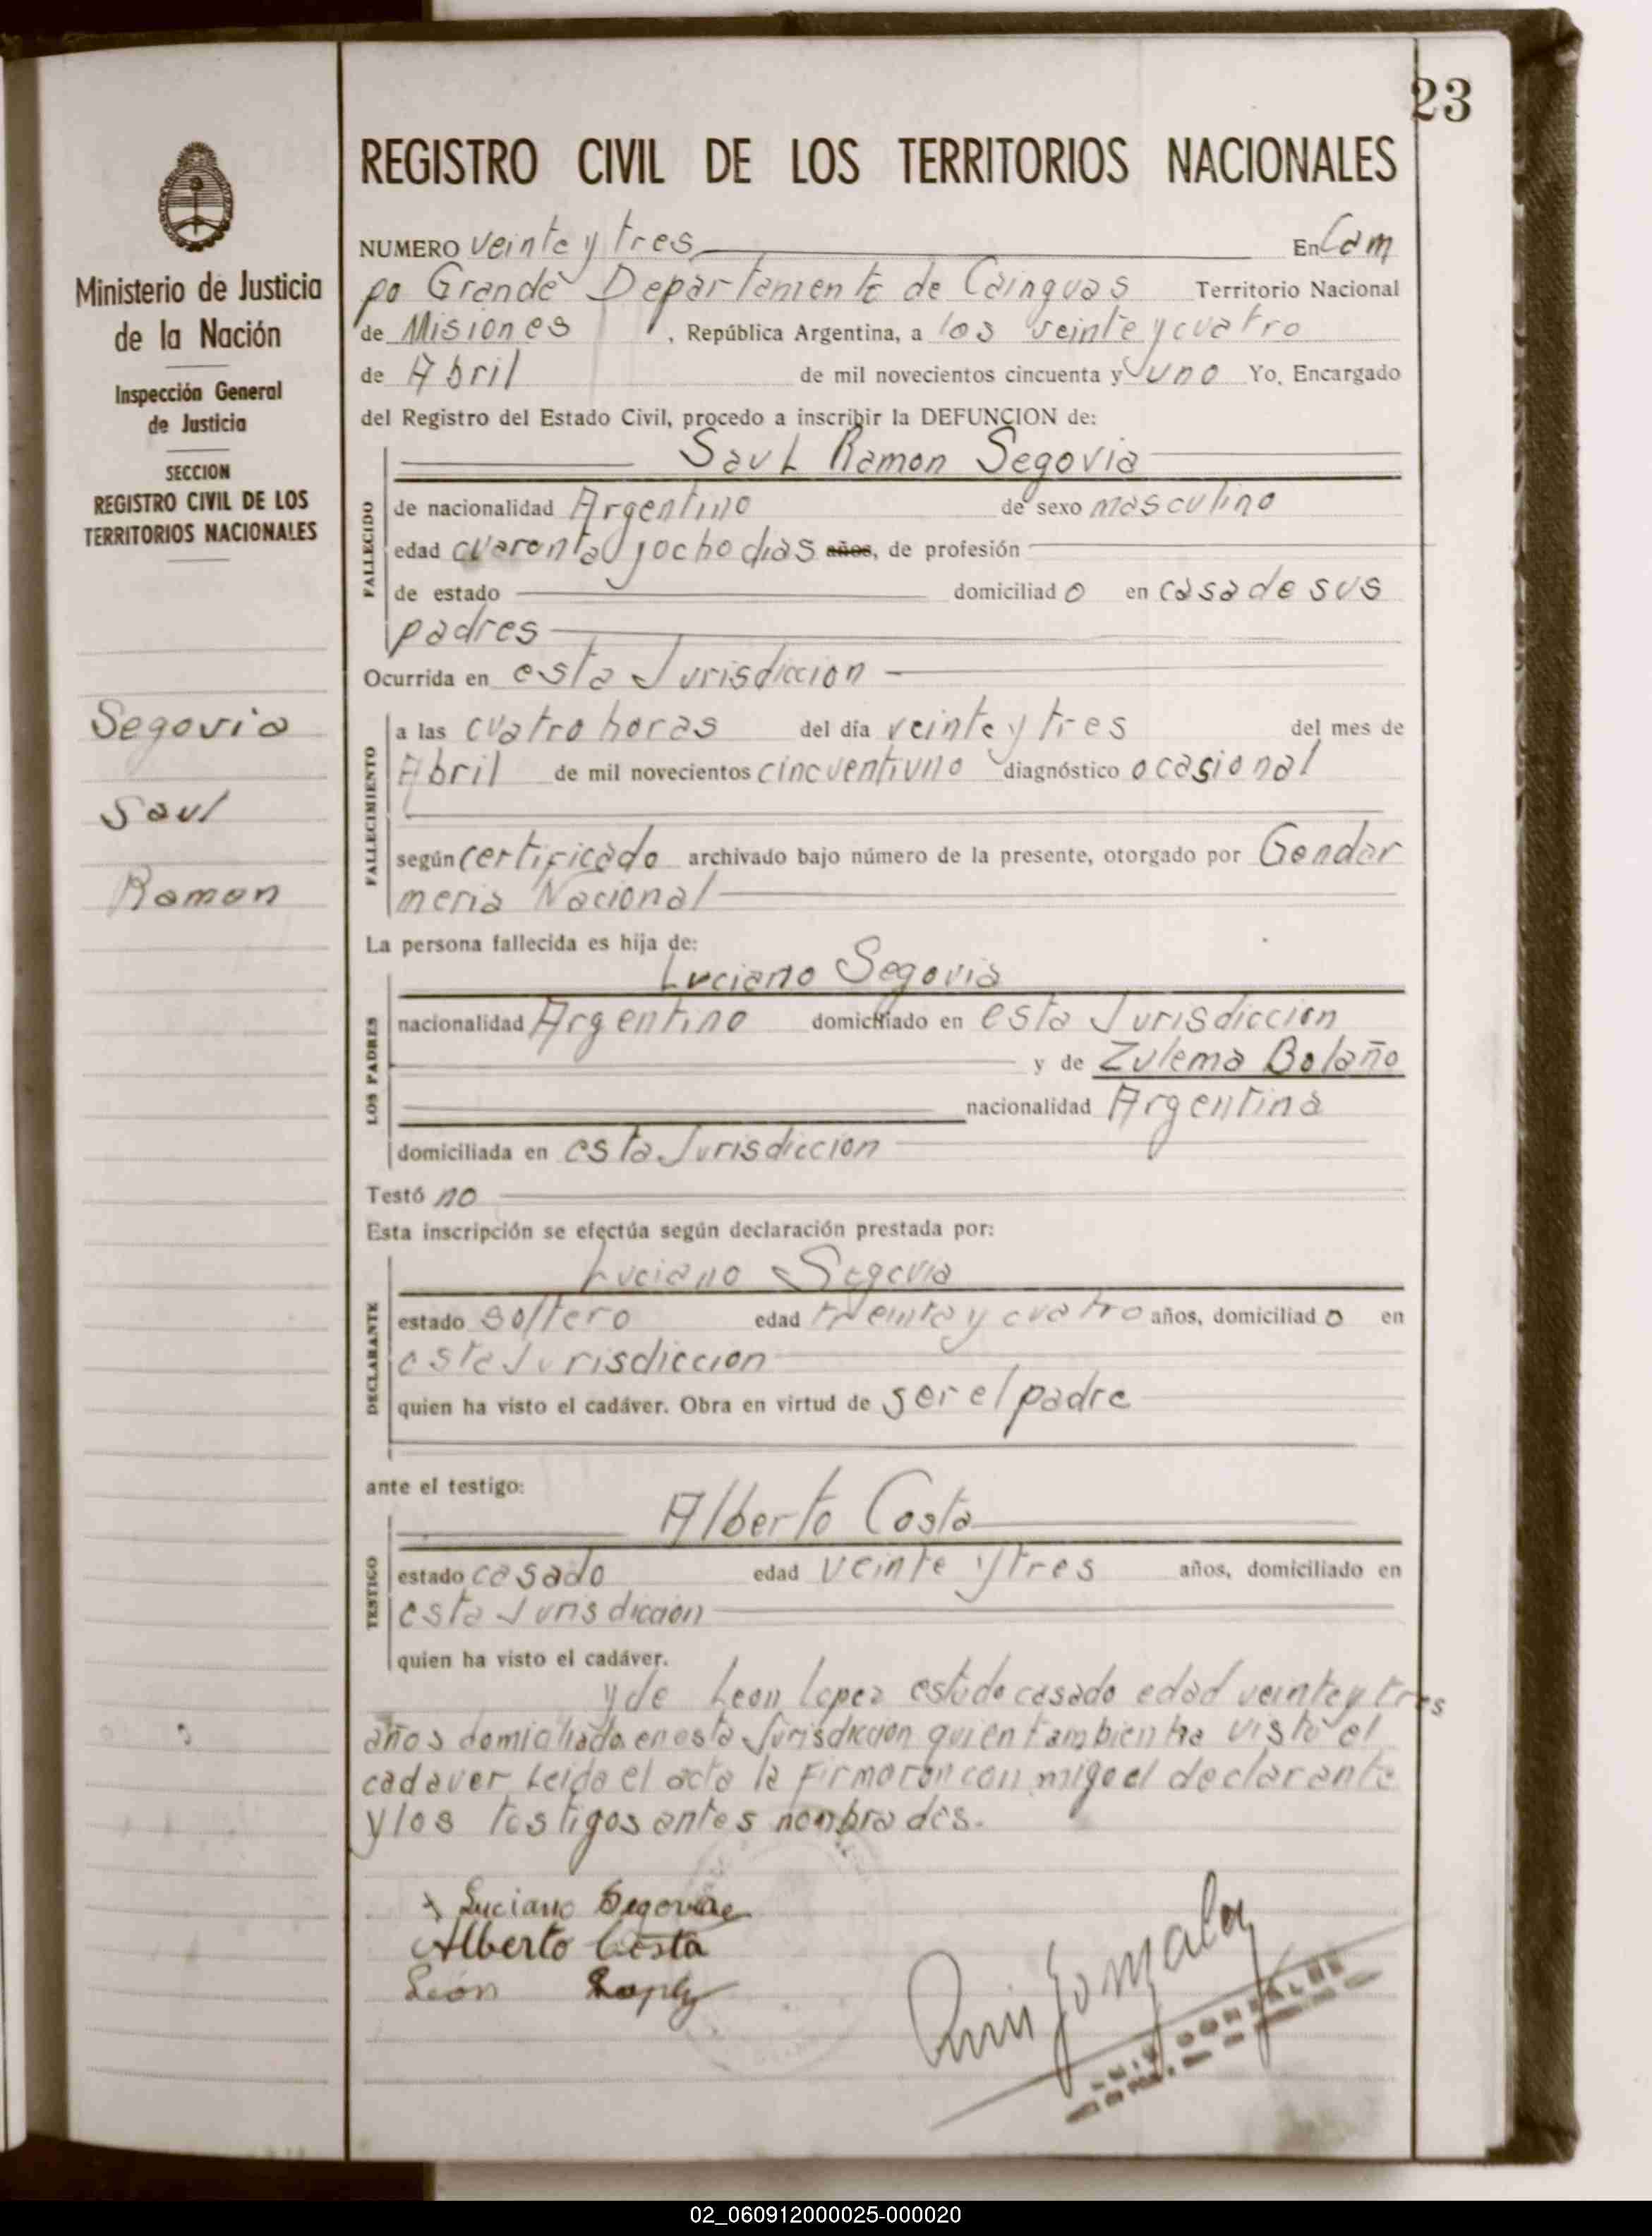 23
REGISTRO CIVIL DE LOS TERRITORIOS NACIONALES
Ministerio de Justicia
de la Nación
Inspección General
de Justicia
SECCION
REGISTRO CIVIL DE LOS
TERRITORIOS NACIONALES
Segovia
Saul
Ramon
NUMERO veinte y tres En Cam
po Grande Departamento de Cainguas Territorio Nacional
de Misiones, República Argentina, a los veinte y cuatro
de Abril de mil novecientos cincuenta y uno Yo, Encargado
del Registro del Estado Civil, procedo a inscribir la DEFUNCION de:
Saul Ramon Segovia
FALLECIDO
de nacionalidad Argentino de sexo masculino
edad cuarenta y ocho dias años, de profesión
de estado domiciliado en casa de sus
padres
Ocurrida en esta Jurisdiccion
FALLECIMIENTO
a las cuatro horas del día veinte y tres del mes de
Abril de mil novecientos cincuentiuno diagnóstico ocasional
según certificado archivado bajo número de la presente, otorgado por Gendar
meria Nacional
La persona fallecida es hija de:
Luciano Segovia
LOS PADRES
nacionalidad Argentino domiciliado en esta Jurisdiccion
y de Zulema Bolaño
nacionalidad Argentina
domiciliada en esta Jurisdiccion
Testó no
Esta inscripción se efectúa según declaración prestada por:
Luciano Segovia
DECLARANTE
estado soltero edad treinta y cuatro años, domiciliado en
esta Jurisdiccion
quien ha visto el cadáver. Obra en virtud de ser el padre
ante el testigo:
Alberto Costa
TESTIGO
estado casado edad veinte y tres años, domiciliado en
esta Jurisdiccion
quien ha visto el cadáver.
y de Leon Lopez estado casado edad veinte y tres
años domiciliado en esta Jurisdiccion quien tambien ha visto el
cadaver Leida el acta la firmaron con migo el declarante
y los testigos antes nombrados.
Luciano Segovia
Alberto Costa
León
Luis Gonzalez
LUIS GONZALEZ
02_060912000025-000020